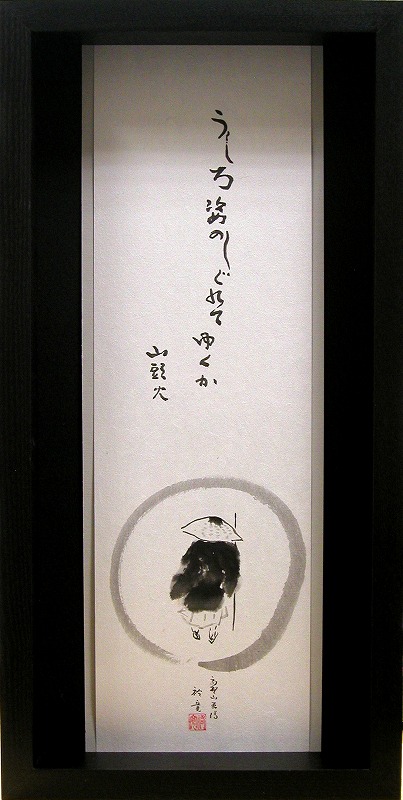 うしろ姿のしぐれてゆくか
山頭火